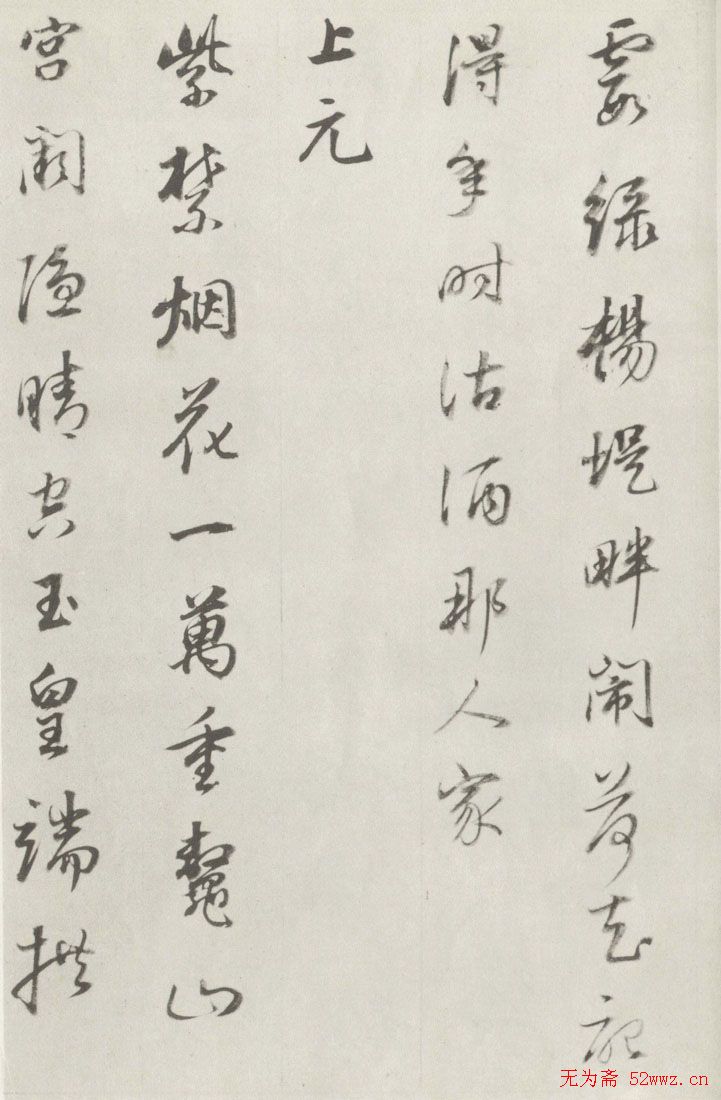 霞綠楊堤畔鬧荷花記
得年時沽酒那人家
上元
紫禁烟花一萬重鼇山
宮闕隱晴空玉皇端拱
无为斋 52wwz.cn